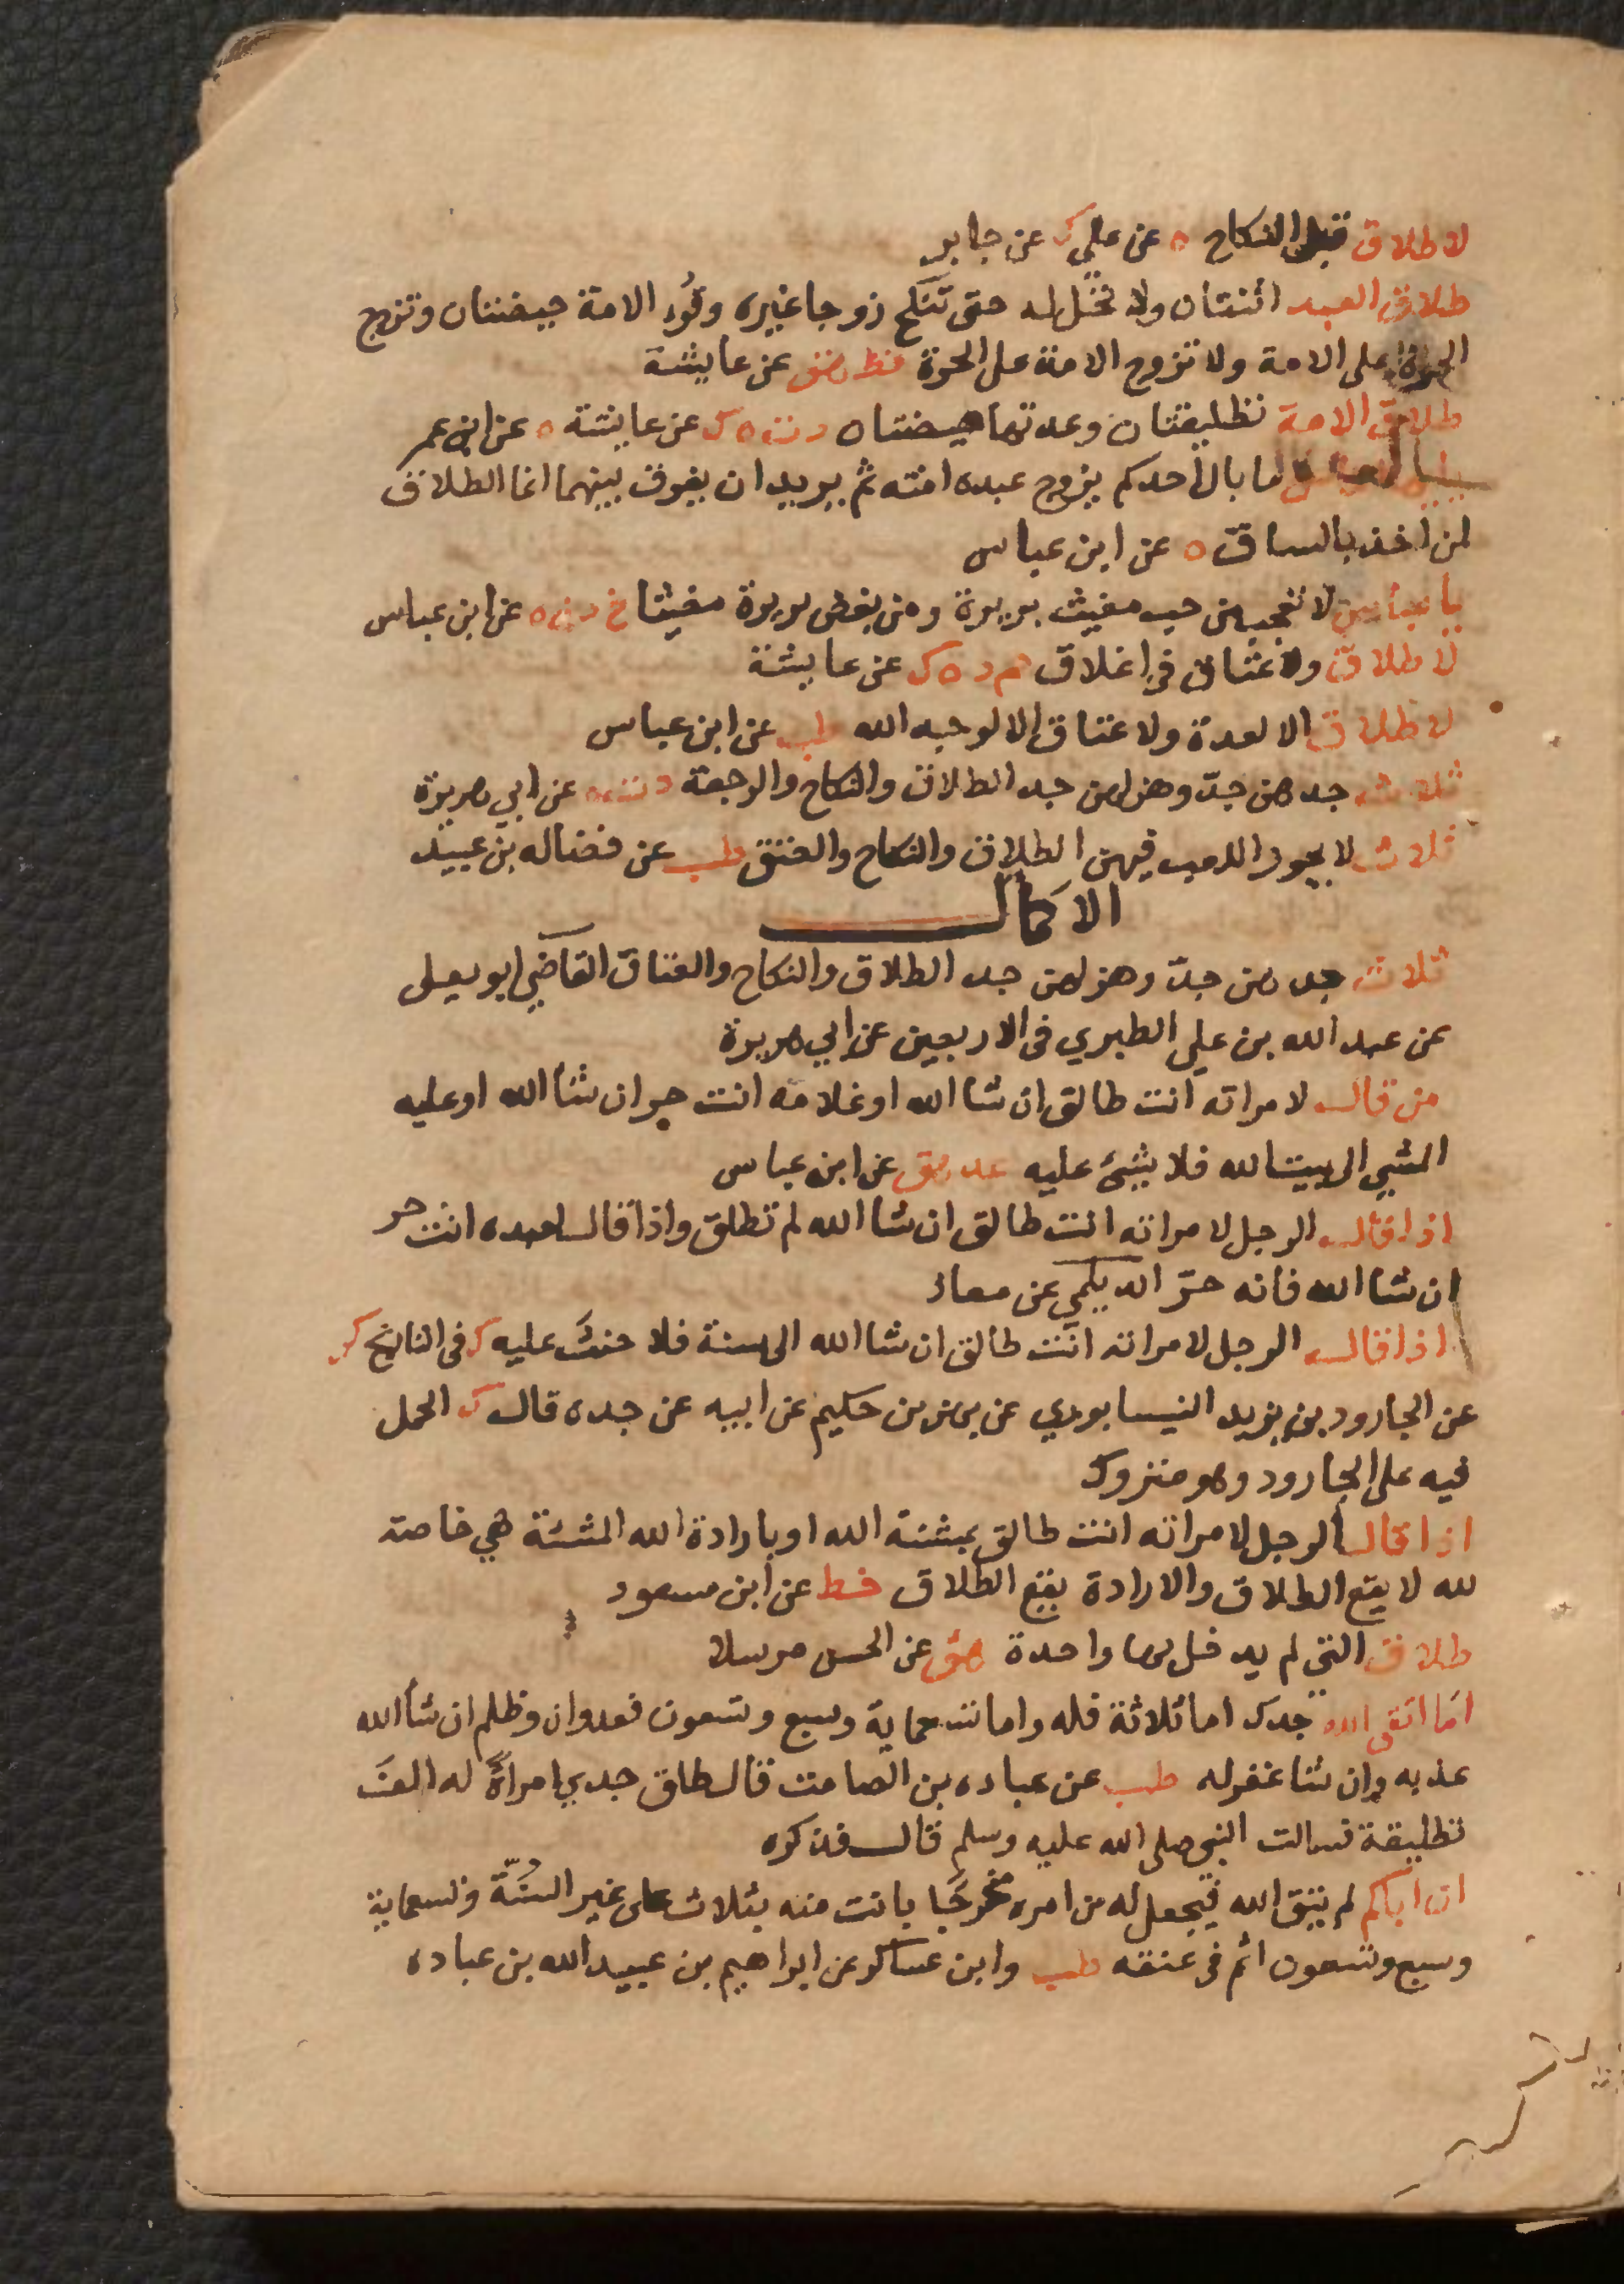 لا طلاق قبل النكاح ه عن علي ك عن جابر
طلاق العبد اثنتان ولا تحل له حتى تنكح زوجا غيره وقرء الامة حيضتان وتتزوج
الحرة على الامة ولا تزوج الامة على الحرة قط هق عن عايشة
طلاق الامة تطليقتان وعدتها حيضتان د ت ه ك عن عايشة ه عن ابن عمر
ما بال احدكم يزوج عبده امته ثم يريد ان يفرق بينهما انما الطلاق
لمن اخذ بالساق ه عن ابن عباس
يا عباس الا تعجب من حب مغيث بريرة ومن بغض بريرة مغيثا خ د ن ه عن ابن عباس
لا طلاق ولا عتاق في اغلاق حم د ه ك عن عايشة
لا طلاق الا لعدة ولا عتاق الا لوجه الله طب عن ابن عباس
ثلاث جدهن جدّ وهزلهن جد الطلاق والنكاح والرجعة د ت ه عن ابي هريرة
ثلاث لا يجوز اللعب فيهن الطلاق والنكاح والعتق طب عن فضاله بن عبيد
الاكمال
ثلاث جدهن جدّ وهزلهن جد الطلاق والنكاح والعتاق القاضي ابو يعلى
عن عبد الله بن علي الطبري فى الاربعين عن ابي هريرة
من قال لامراته انت طالق ان شا الله او غلامه انت حر ان شا الله او عليه
المشي الى بيت الله فلا شيئ عليه عد هق عن ابن عباس
اذا قال الرجل لامراته انت طالق ان شا الله لم تطلق واذا قال لعبده انت حر
ان شا الله فانه حرّ الديلمي عن معاذ
اذا قال الرجل لامراته انت طالق ان شا الله الى سنة فلا حنث عليه ك فى التاريخ كر
عن الجارود بن يزيد النيسابوري عن بهز بن حكيم عن ابيه عن جده قال ك الحمل
فيه على الجارود وهو متروك
اذا قال الرجل لامراته انت طالق بمشئة الله او بارادة الله المشئة هي خاصة
لله لا يقع الطلاق والارادة يقع الطلاق خط عن ابن مسعود
طلاق التي لم يدخل بها واحدة هق عن الحسن مرسلا
اما اتقى الله جدك اما ثلاثة فله واما تسعماية وسبع وتسعون فعدوان وظلم ان شا الله
عذبه وان شا غفر له طب عن عباده بن الصامت قال طلق جدي امراة له الف
تطليقة فسالت النبي صلى الله عليه وسلم قال فذكره
ان اباكم لم يتق الله فيجعل له من امره مخرجًا بانت منه بثلاث على غير السنّة وتسعماية
وسبع وتسعون اثم فى عنقه طب وابن عساكر عن ابراهيم بن عبيد الله بن عباده